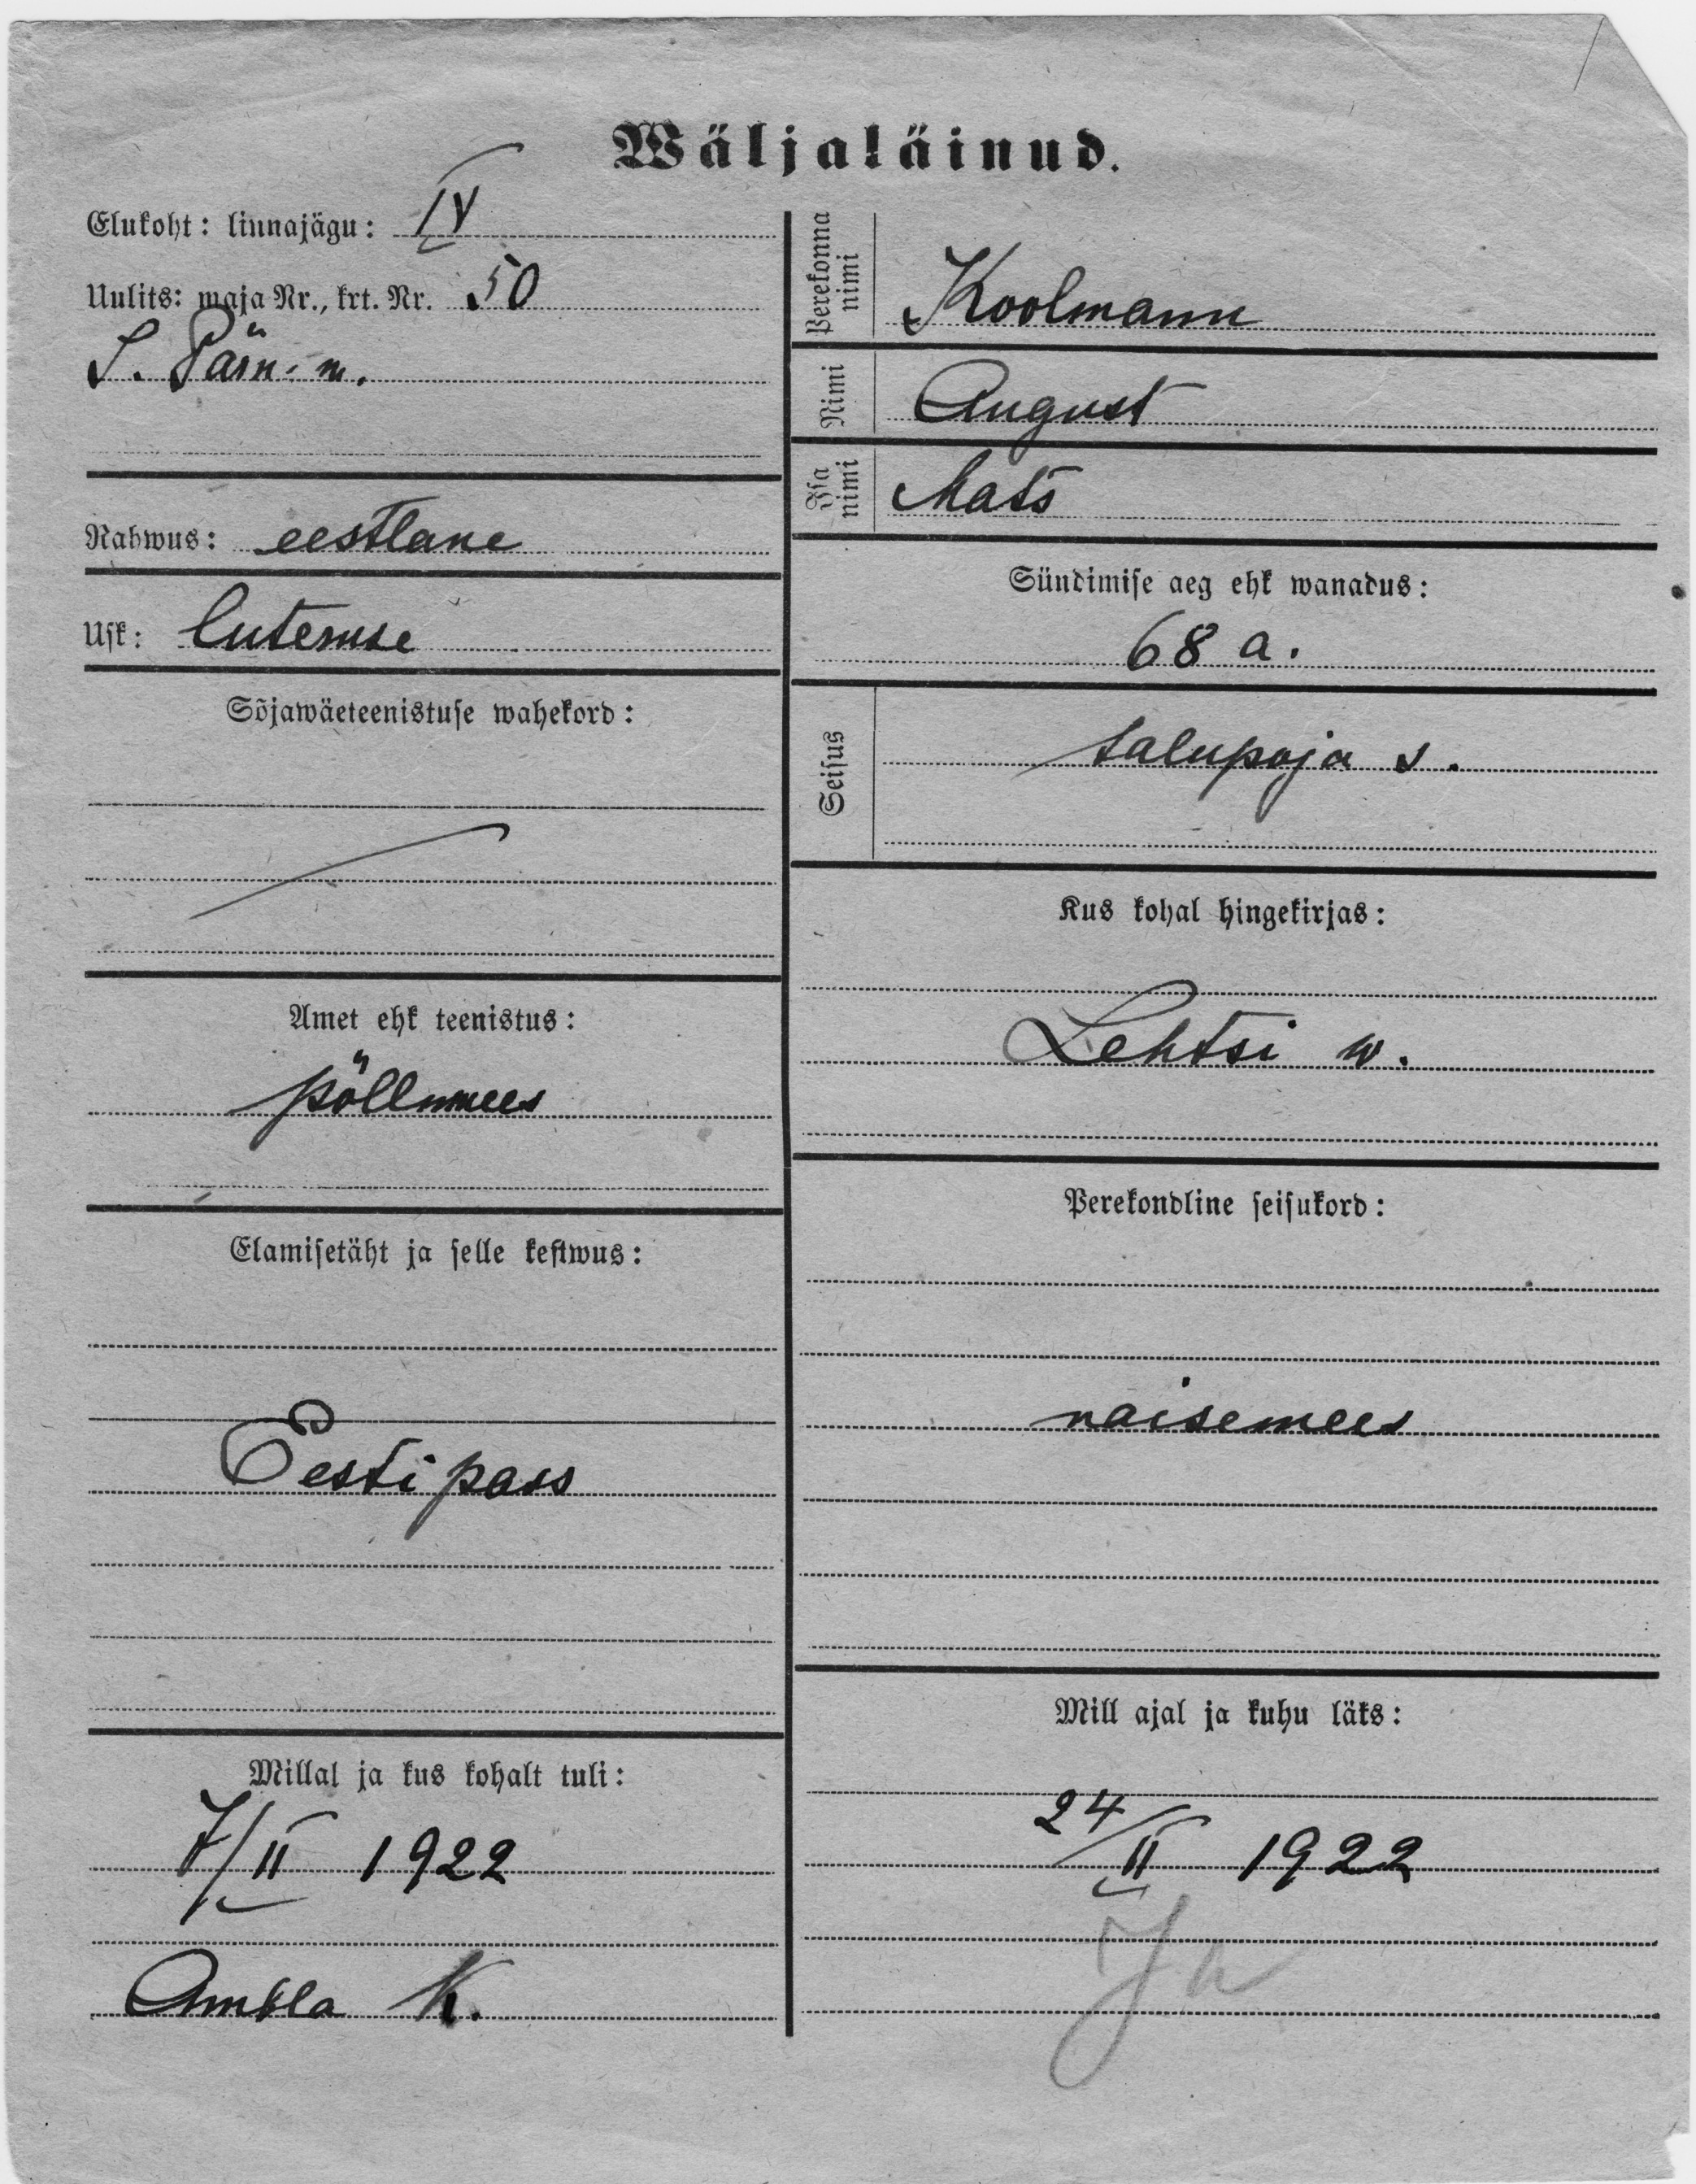 Wäljaläinud.
Elukoht: linnajägu: IV
Uulits: maja Nr., krt. Nr. 50
S. Pärn. m.
Rahwus: eestlane
Usk: luteruse
Sõjawäeteenistuse wahekord:
Amet ehk teenistus:
põllumees
Elamisetäht ja selle kestwus:
Eesti pass
Millal ja kus kohalt tuli:
7/II 1922
Ambla K.
Perekonna nimi Koolmann
Nimi Août
Isa nimi Mats
Sündimise aeg ehk wanadus:
68 a.
Seisus talupoja s.
Kus kohal hingekirjas:
Lehtsi w.
Perekondline seisukord:
naisemees
Mill ajal ja kuhu läks:
24/II 1922